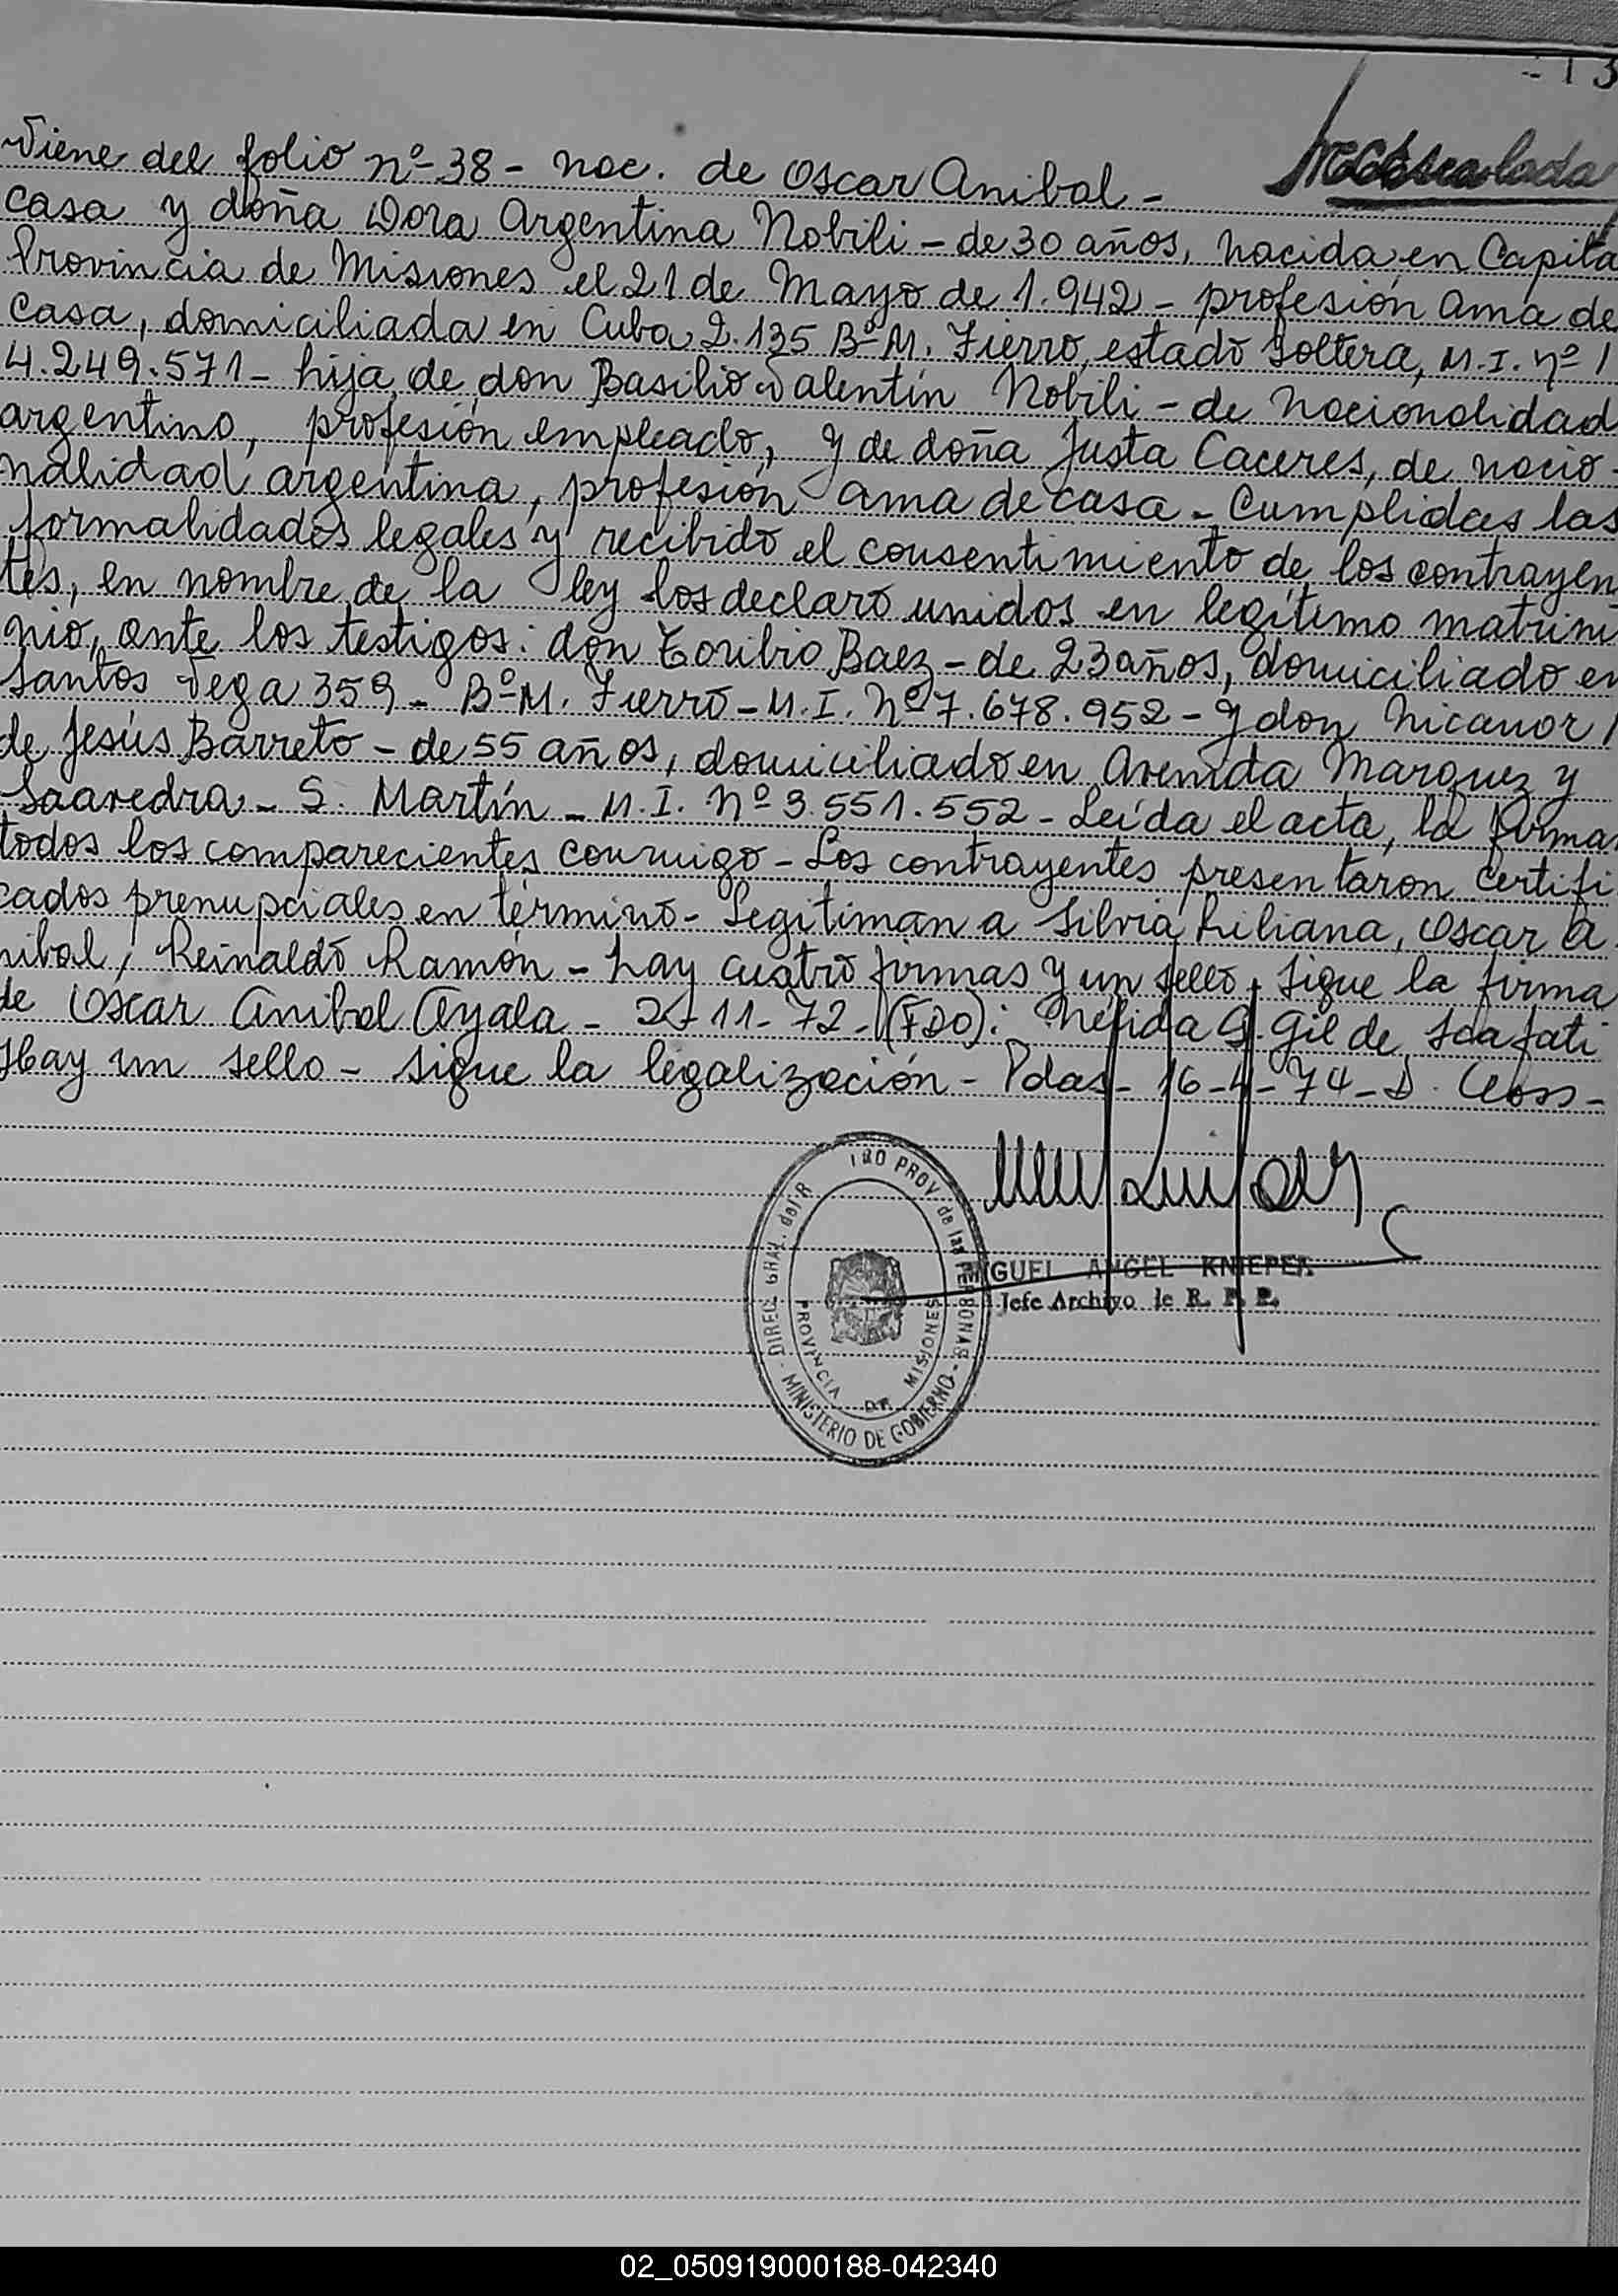 - 13
Viene del folio nº 38 - nac. de Oscar Anibal -
casa y doña Dora Argentina Nobili - de 30 años, nacida en Capita
Provincia de Misiones el 21 de Mayo de 1.942 - profesión ama de
casa, domiciliada en Cuba 2.135 Bº M. Fierro, estado soltera, M.I. nº
4.249.571 - hija de don Basilio Valentín Nobili - de nacionalidad
argentino, profesión empleado, y de doña Justa Caceres, de nacio
nalidad argentina, profesión ama de casa - Cumplidas las
formalidades legales y recibido el consentimiento de los contrayen
tes, en nombre de la ley los declaro unidos en legítimo matrimo
nio, ante los testigos: don Toribio Baez - de 23 años, domiciliado en
Santos Vega 359 - Bº M. Fierro - M.I. Nº 7.678.952 - y don Nicanor
de Jesús Barreto - de 55 años, domiciliado en Avenida Marquez y
Saavedra - S. Martín - M.I. Nº 3.551.552 - Leída el acta, la firman
todos los comparecientes conmigo - Los contrayentes presentaron certifi
cados prenupciales en término - Legitiman a Silvia Liliana, Oscar A
nibal, Reinaldo Ramón - hay cuatro firmas y un sello. Sigue la firma
de Oscar Anibal Ayala - 2-11-72 - (FDO): Nélida G. Gil de
Hay un sello - Sigue la legalización - Pdas - 16-4-74 - D.
DIREC. GRAL. del R TRO PROV de las PERSONAS - MINISTERIO DE GOBIERNO -
PROVINCIA DE MISIONES
MIGUEL ANGEL KNIEPER
Jefe Archivo de R. P. P.
02_050919000188-042340